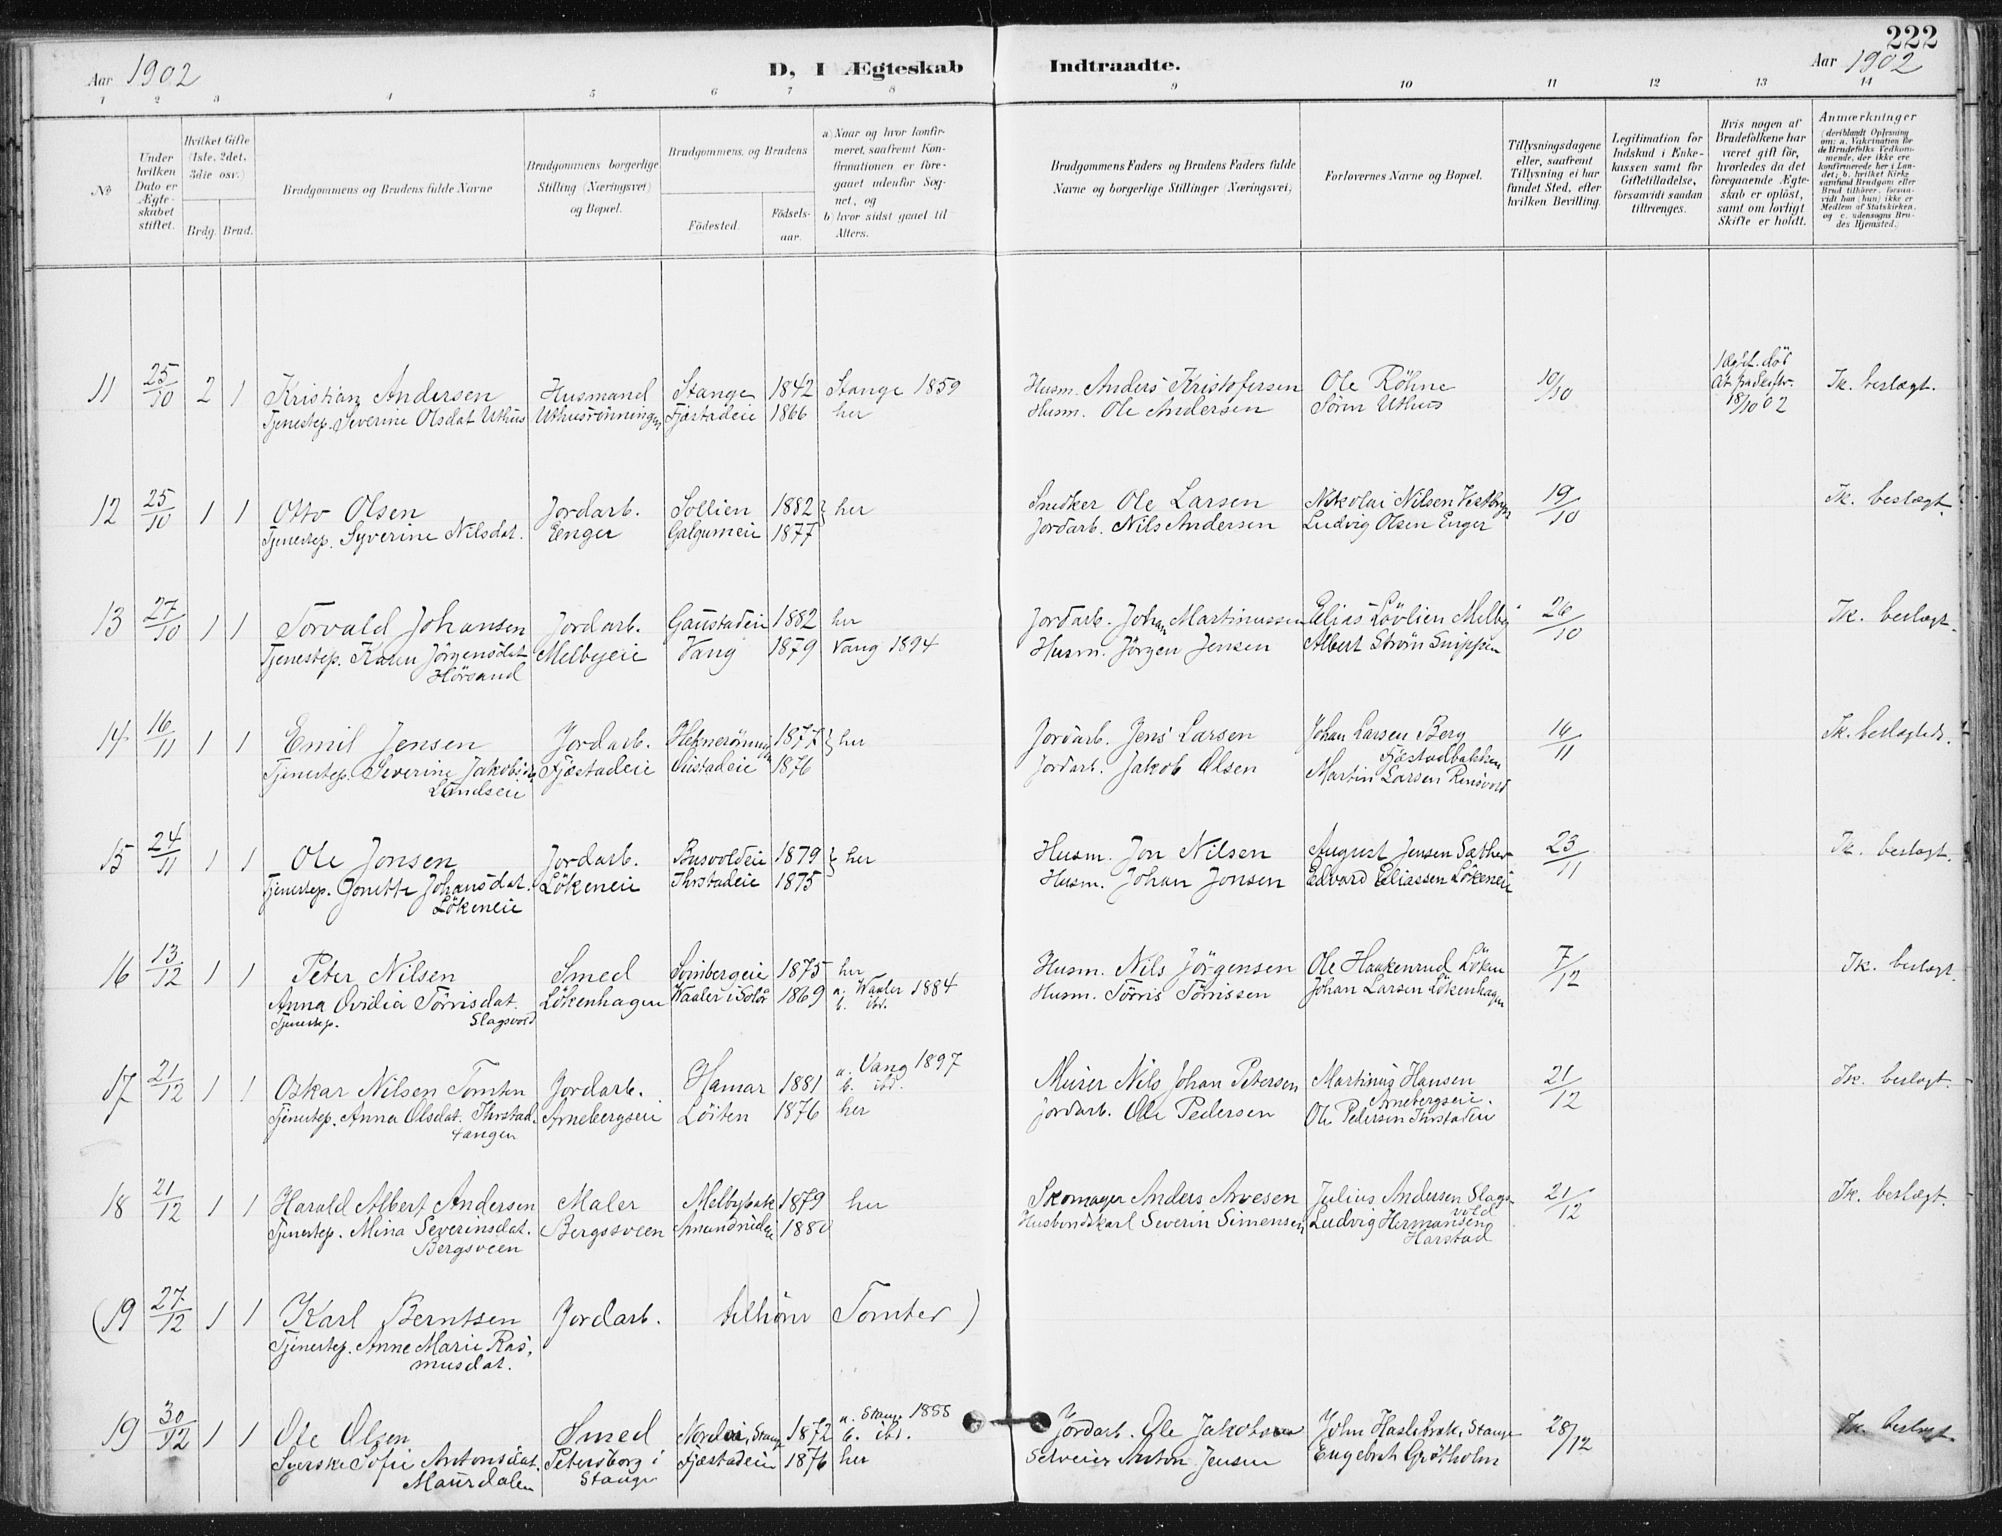 222
Aar 1902
D, I Ægteskab Indtraadte.
Aar 1902
1 2 3 4 5 6 7 8 9 10 11 12 13 14
No
Under hvilken Dato er Ægteskabet stiftet.
Hvilket Gifte (1ste, 2det, 3die osv.)
Brdg. Brud.
Brudgommens og Brudens fulde Navne
Brudgommens borgerlige Stilling (Næringsvei) og Bopæl.
Brudgommens, og Brudens
Fødested.
Fødselsaar.
a) Naar og hvor konfirmeret, saafremt Konfirmationen er foregaaet udenfor Sognet, og
b) hvor sidst gaaet til Alters.
Brudgommens Faders og Brudens Faders fulde Navne og borgerlige Stillinger (Næringsvei)
Forlovernes Navne og Bopæl.
Tillysningsdagene eller, saafremt Tillysning ei har fundet Sted, efter hvilken Bevilling.
Legitimation for Indskud i Enkekassen samt for Giftetilladelse, forsaavidt saadan tiltrænges.
Hvis nogen af Brudefolkene har været gift før, hvorledes da det foregaaende Ægteskab er opløst, samt om lovligt Skifte er holdt.
Anmærkninger (deriblandt Oplysning om: a. Vakcination for de Brudefolks Vedkommende, der ikke ere konfirmerede her i Landet; b. hvilket Kirkesamfund Brudgom eller Brud tilhører, forsaavidt han (hun) ikke er Medlem af Statskirken, og c. udensogns Brudes Hjemsted.)
11 25/10 2 1 Kristian Andersen Husmand Stange 1842 Stange 1859 Husm. Anders Kristofersen Ole Røhne 19/10 Ik. beslægt.
Tjenestep. Severine Olsdat Uthus Uthusrønningen Fjæstadeie 1866 her Husm. Ole Andersen Søren Uthus
18/10 02
12 25/10 1 1 Otto Olsen Jordarb. Sollien 1882 } her Snedker Ole Larsen Nikolai Nilsen Vestby 19/10 Ik. beslægt.
Tjenestep. Syverine Nilsdat. Enger Galgumeie 1877 Jordarb. Nils Andersen Ludvig Olsen Enger
13 27/10 1 1 Torvald Johansen Jordarb. Gaustadeie 1882 her Jordarb. Johan Martinussen Elias Løvlien Melby 26/10 Ik. beslægt.
Tjenestep. Karen Jørgensdat. Melbyeie Vang 1879 Vang 1894 Husm. Jørgen Jensen Albert Strøm Snippen
Hørsand
14 16/11 1 1 Emil Jensen Jordarb. 1877 } her Jordarb. Jens Larsen Johan Larsen Berg 16/11 Ik. beslægtede.
Tjenestep. Severine Jakobsd. Fjæstadeie 1876 Jordarb. Jakob Olsen Fjæstadbakken
Lundseie Martin Larsen Rensvold
15 24/11 1 1 Ole Jonsen Jordarb. Busvoldeie 1879 } her Husm. Jon Nilsen August Jensen Sæther 23/11 Ik. beslægt.
Tjenestep. Jonette Johansdat. Løkeneie Ihrstadeie 1875 Husm. Johan Jonsen Edvard Eliassen Løkeneie
Løkeneie
16 13/12 1 1 Peter Nilsen Smed Sembergeie 1875 her Husm. Nils Jørgensen Ole Haakenrud Løken 7/12 Ik. beslægt.
Anna Ovidia Tørrisdat. Løkenhagen Vaaler i Solør 1869 a. Vaaler 1884 Husm. Tørris Tørrissen Johan Larsen Løkenhagen
Tjenestep. Slagsvold b. ibd.
17 21/12 1 1 Oskar Nilsen Tomten Jordarb. Hamar 1881 a. Vang 1897 b. ibd. Murer Nils Johan Petersen Martinus Hansen 21/12 Ik. beslægt.
Tjenestep. Anna Olsdat. Ihrstad- Arnebergseie Løiten 1876 her Jordarb. Ole Pedersen Arnebergseie.
tangen Ole Pedersen Ihrstadeie
18 21/12 1 1 Harald Albert Andersen Maler Melbybak 1879 her Skomager Anders Arvesen Julius Andersen Slagsvold 21/12 Ik. beslægt.
Tjenestep. Mina Severinsdat. Bergsveen 1880 Husbondskarl Severin Simensen Ludvig Hermansen
Bergsveen Harstad
(19 27/12 1 1 Karl Berntsen Jordarb. tilhører Tomter )
Tjenestep. Anne Marie Ras-
musdat.
19 30/12 1 1 Ole Olsen Smed Stange 1872 a. Stange 1888 b. ibd. Jordarb. Ole Jakobsen John Haslebrak, Stange 28/12 Ik. beslægt.
Syerske Sofie Antonsdat. Petersborg i Fjæstadeie 1876 her Selveier Anton Jensen Engebret Grøtholm
Maurdalen Stange